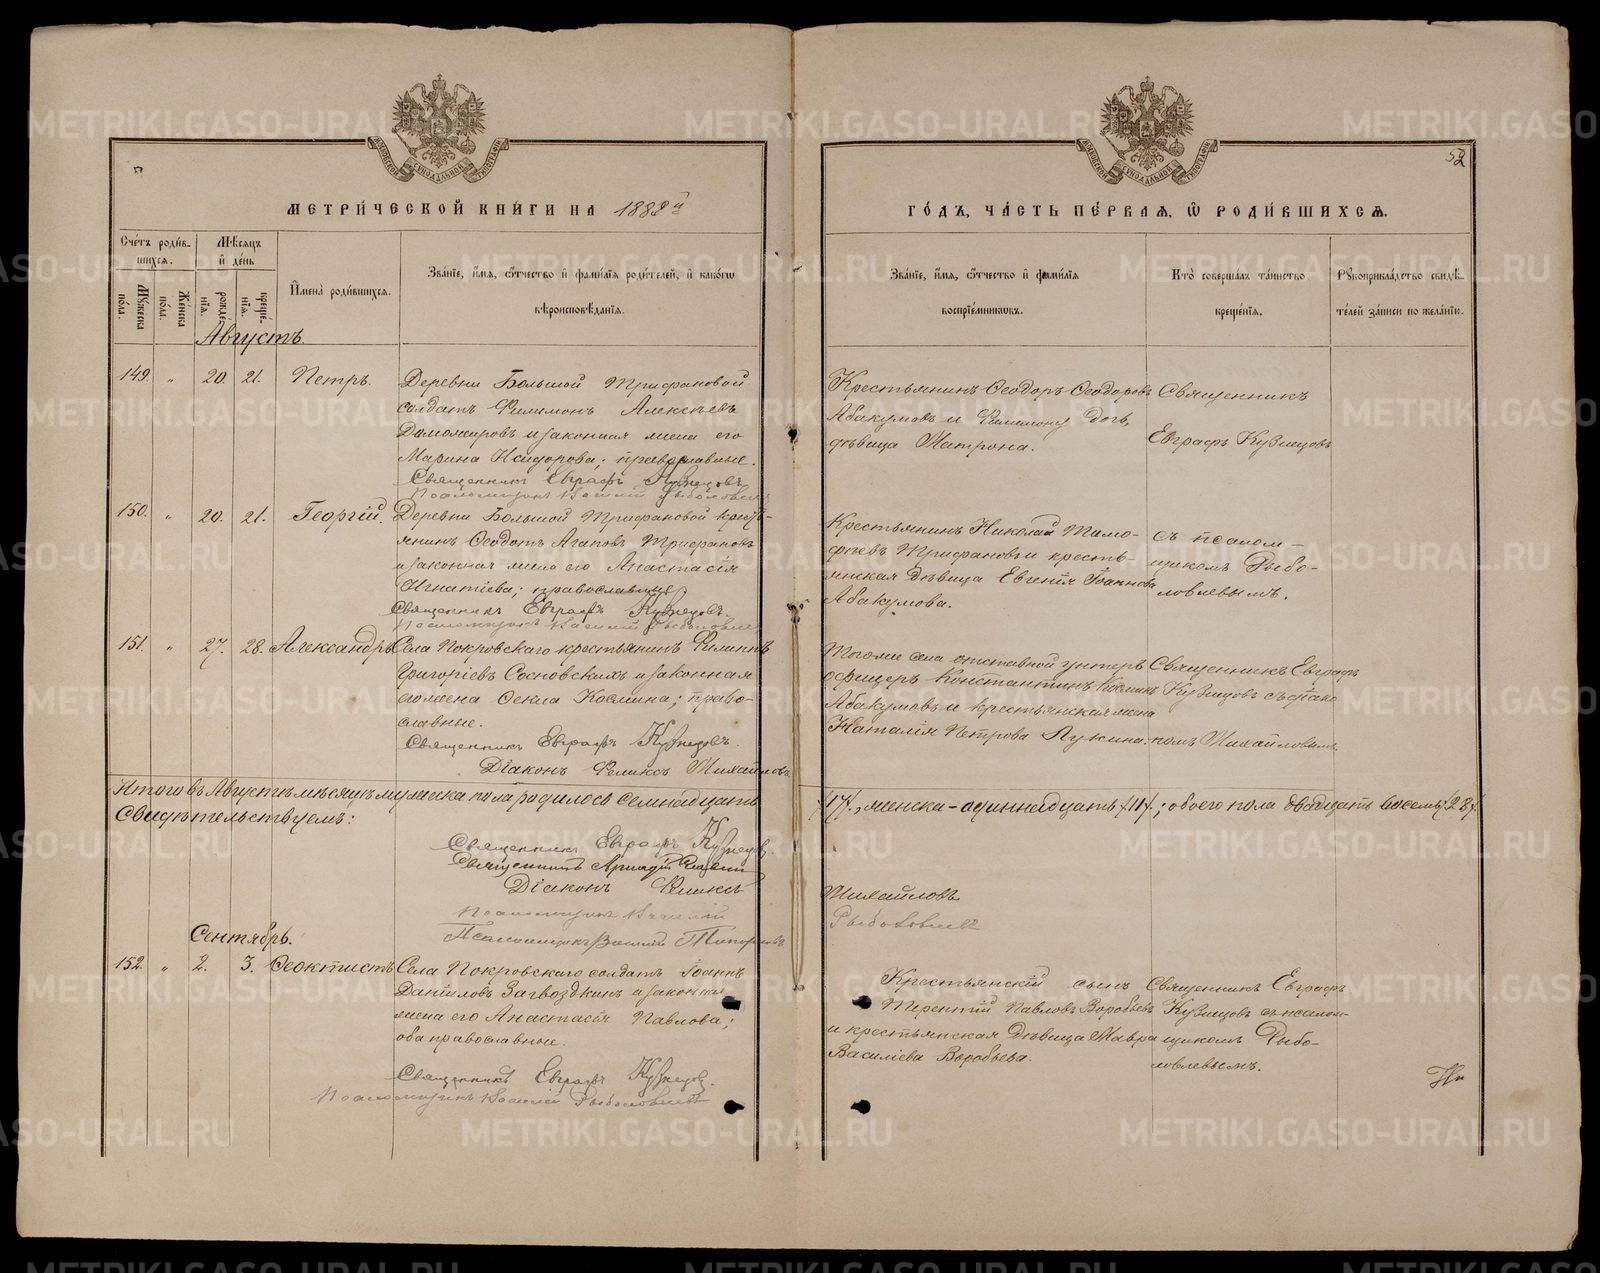 52
МЕТРИ́ЧЕСКОЙ КНИ́ГИ НА 1888й
ГО́ДЪ, ЧА́СТЬ ПЕ́РВАЯ, Ѡ РОДИ́ВШИХСЯ.
Сче́тъ роди́в-
шихся.
Мѣсяцъ
и де́нь
Мꙋжеска по́ла.
Же́нска по́ла.
рожде́нїя.
креще́нїя.
И҆мена̀ роди́вшихся.
Зва́нїе, и҆́мя, ѻ҆́тчество и҆ фами́лїя роди́телей, и҆ како́гѡ
вѣроисповѣ́данїя.
Зва́нїе, и҆́мя, ѻ҆́тчество и҆ фами́лїя
воспрїе́мниковъ.
Кто̀ соверша́лъ та́инство
креще́нїя.
Рꙋкоприкла́дство свидѣ́-
телей за́писи по жела́нїю.
Августъ.
149. „ 20. 21. Петръ.
Деревни Большой Трифановой
солдатъ Филимонъ Алексѣевъ
Доможировъ и законная жена его
Марина Исидорова; православные.
Священникъ Евграфъ Кузнецовъ
Псаломщикъ Василій Рыболовлевъ
Крестьянинъ Ѳеодоръ Ѳеодоровъ
Абакумовъ и Филимона дочь,
дѣвица Матрона.
Священникъ
Евграфъ Кузнецовъ
150. „ 20. 21. Георгій.
Деревни Большой Трифановой кресть-
янинъ Ѳеодотъ Агаповъ Трифановъ
и законная жена его Анастасія
Игнатіева; православные
Священникъ Евграфъ Кузнецовъ.
Псаломщикъ Василій Рыболовлевъ
Крестьянинъ Николай Тимо-
фѣевъ Трифановъ и кресть-
янская дѣвица Евгенія Іоаннова
Абакумова.
съ псалом-
щикомъ Рыбо-
ловлевымъ.
151. „ 27. 28. Александръ
Села Покровскаго крестьянинъ Филиппъ
Григоріевъ Сосновскихъ и законная
его жена Ѳекла Косьмина; право-
славные.
Священникъ Евграфъ Кузнецовъ.
Діаконъ Феликсъ Михайловъ
Того же села отставной унтеръ
офицеръ Константинъ Косьминъ
Абакумовъ и крестьянская жена
Наталія Петрова Лукина.
Священникъ Евграфъ
Кузнецовъ съ діако
номъ Михайловымъ
Итого въ Августѣ мѣсяцѣ мужеска пола родилось семнадцать
/17/., женска - одиннадцать /11/.; обоего пола двадцать восемь /28/
Свидѣтельствуемъ:
Священникъ Евграфъ Кузнецовъ.
Священникъ Аркадій
Діаконъ Феликсъ
Михайловъ
Псаломщикъ Василій
Рыболовлевъ
Псаломщикъ Василій
Сентябрь.
152. „ 2. 3. Ѳеоктистъ
Села Покровскаго солдатъ Іоаннъ
Даніиловъ Загвоздкинъ и законная
жена его Анастасія Павлова;
оба православные.
Священникъ Евграфъ Кузнецовъ.
Псаломщикъ Василій Рыболовлевъ
Крестьянскій сынъ
Терентій Павловъ Воробьевъ
и крестьянская дѣвица Мавра
Василіева Воробьева.
Священникъ Евграфъ
Кузнецовъ съ псалом-
щикомъ Рыбо-
ловлевымъ.
METRIKI.GASO-URAL.RU